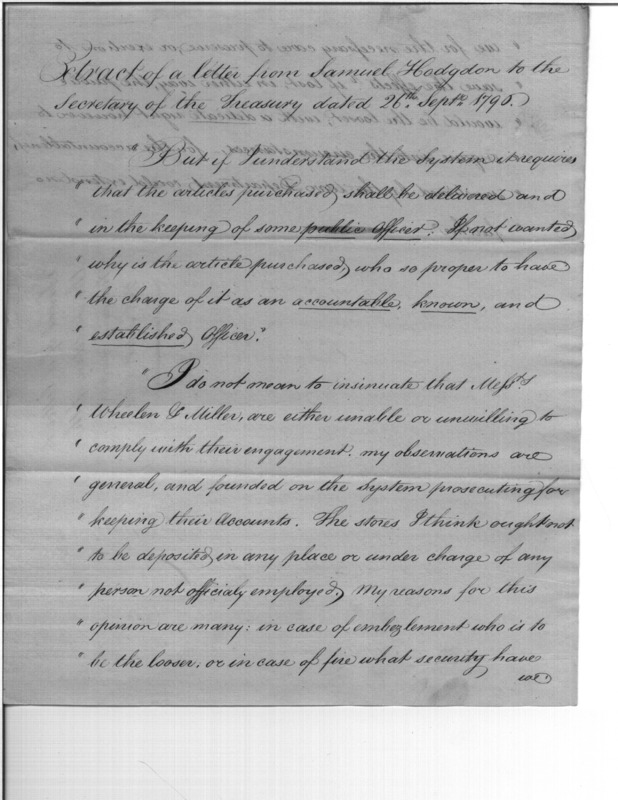 Extract of a letter from Samuel Hodgdon to the
Secretary of the Treasury dated 26th Septr. 1795.
"But if I understand the System it requires
" that the articles purchased, shall be delivered and
" in the keeping of some public Officer. If not wanted,
" why is the article purchased, who so proper to have
" the charge of it as an accountable, known, and
" established, Officer."
"I do not mean to insinuate that Messrs.
" Wheelen & Miller, are either unable or unwilling to
" comply with their engagement. my observations are
" general, and founded on the System prosecuting for
" keeping their Accounts. The stores I think ought not
" to be deposited, in any place or under charge of any
" person not officialy employed, My reasons for this
" opinion are many: in case of embezlement who is to
" be the looser, or in case of fire what security, have
we